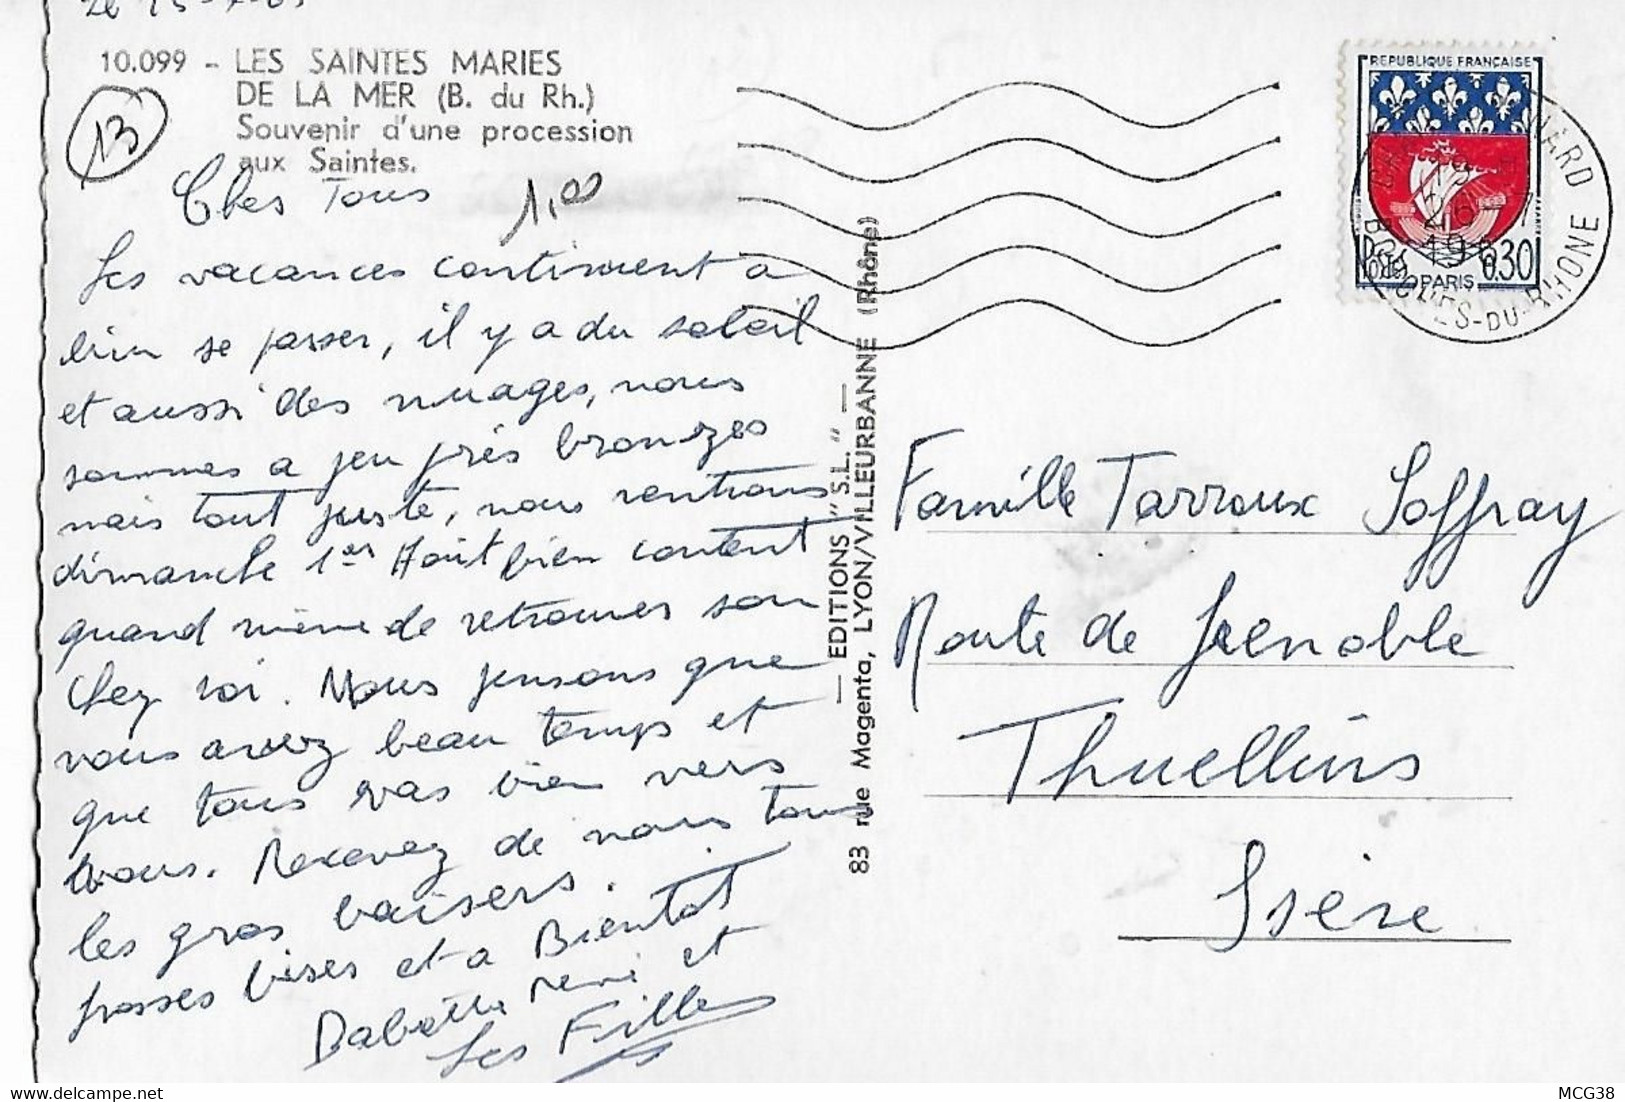 10.099 - LES SAINTES MARIES
DE LA MER (B. du Rh.)
Souvenir d'une procession
aux Saintes.
13
1,00
Chers Tous
Les vacances continuent a
bien se passer, il y a du soleil
et aussi des nuages, nous
sommes a peu près bronzés
mais tout juste, nous rentrons
dimanche 1er Août bien content
quand même de retrouver son
chez soi. Nous pensons que
vous avez beau temps et
que tous vas bien vers
vous. Recevez de nous tous
les gros baisers.
grosses bises et a Bientot
René et
Les Filles
EDITIONS "S.L."
83 rue Magenta, LYON/VILLEURBANNE (Rhône)
REPUBLIQUE FRANÇAISE
POSTES 0,30
PARIS
BOUCHES-DU-RHONE
Famille Tarroux Joffray
Route de Grenoble
Thuellins
Isère
MCG38